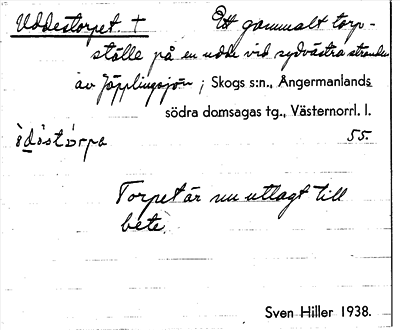 Uddestorpet. † Ett gammalt torp-
ställe på en udde vid sydvästra stranden
av Jäpplingsjön; Skogs s:n., Ångermanlands
södra domsagas tg., Västernorrl. l.
55.
Torpet är nu utlagt till
bete.
Sven Hiller 1938.